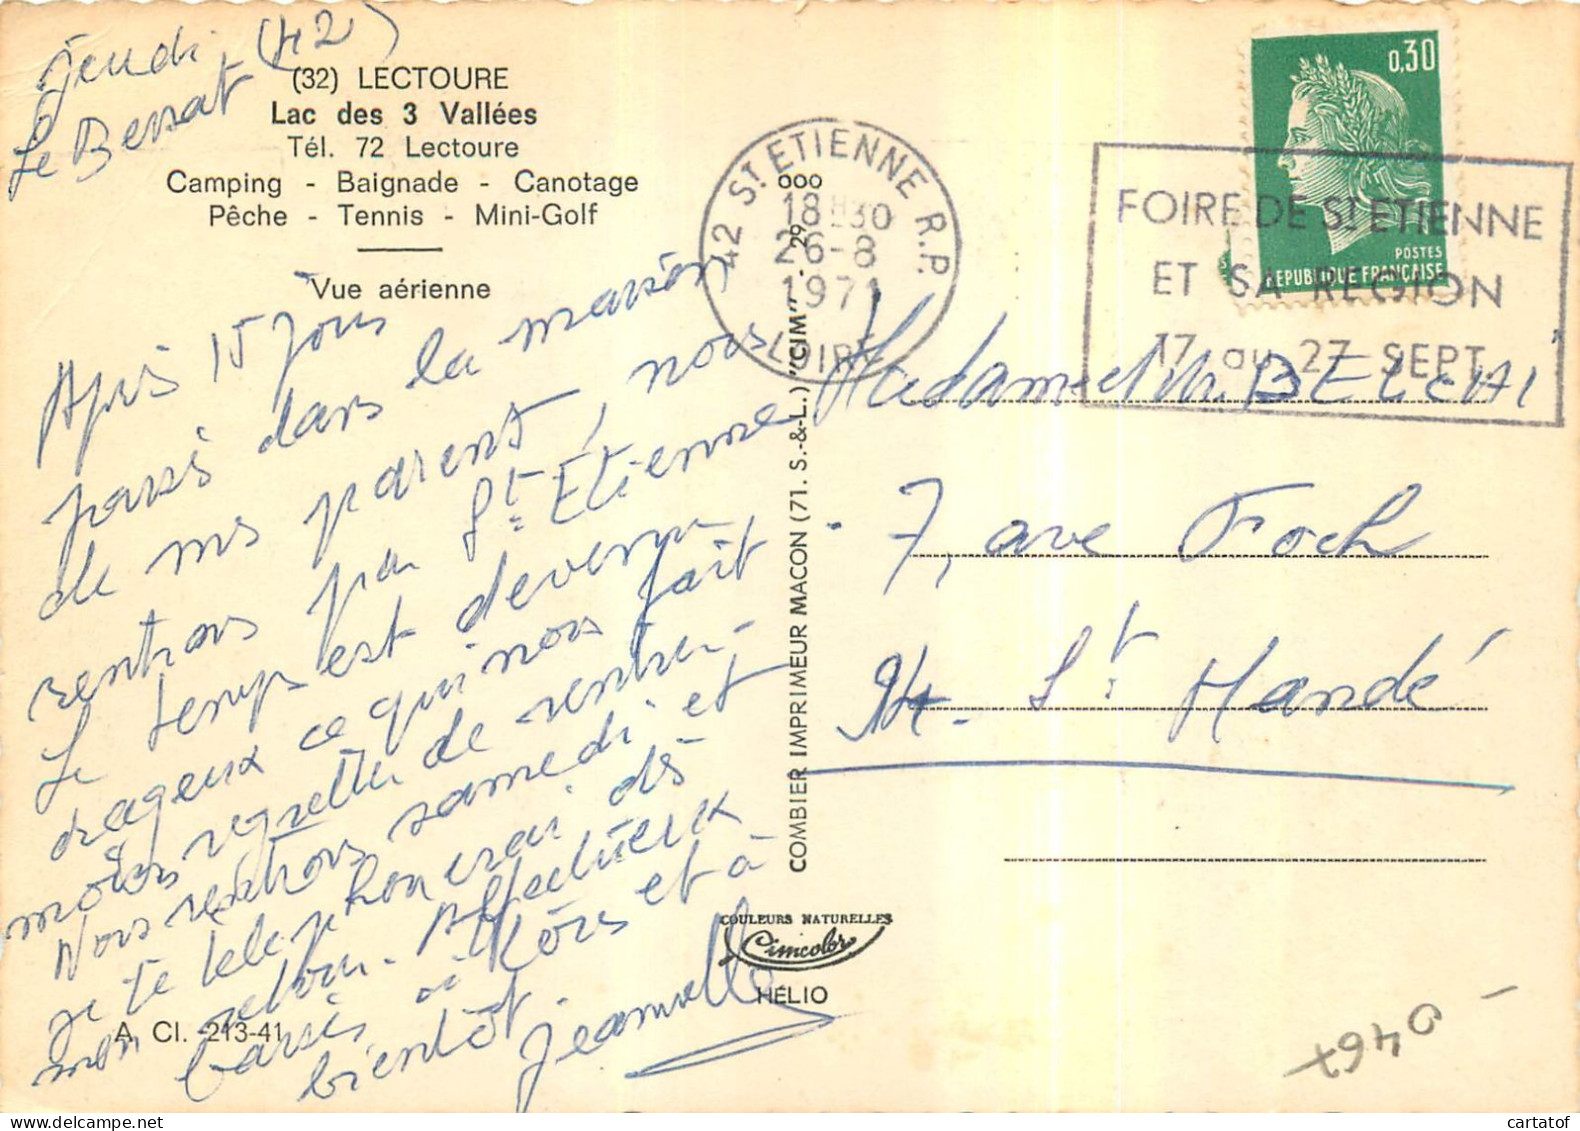 Jeudi
Le Bessat (42)
(32) LECTOURE
Lac des 3 Vallées
Tél. 72 Lectoure
Camping - Baignade - Canotage
Pêche - Tennis - Mini-Golf
Vue aérienne
Après 15 jours
passés dans la maison
de mes parents, nous
rentrons par St. Etienne
Le temps est devenu
orageux ce qui nous fait
moins regretter de rentrer.
Nous rentrons samedi et
je te téléphonerai dès
mon retour. Affectueux
baisers à
et à
bientôt.
Jeannette
A. CI. 213-41
COMBIER IMPRIMEUR MACON (71. S.-&-L.) "CIM" - 29
COULEURS NATURELLES
Cimcolor
HÉLIO
42 ST ETIENNE R.P.
18H30
26-8
1971
LOIRE
0,30
POSTES
REPUBLIQUE FRANÇAISE
FOIRE DE ST ETIENNE
ET SA REGION
17 au 27 SEPT.
Madame et M. BELCHI
7, ave Foch
94. St. Mandé
0 46x
cartatof